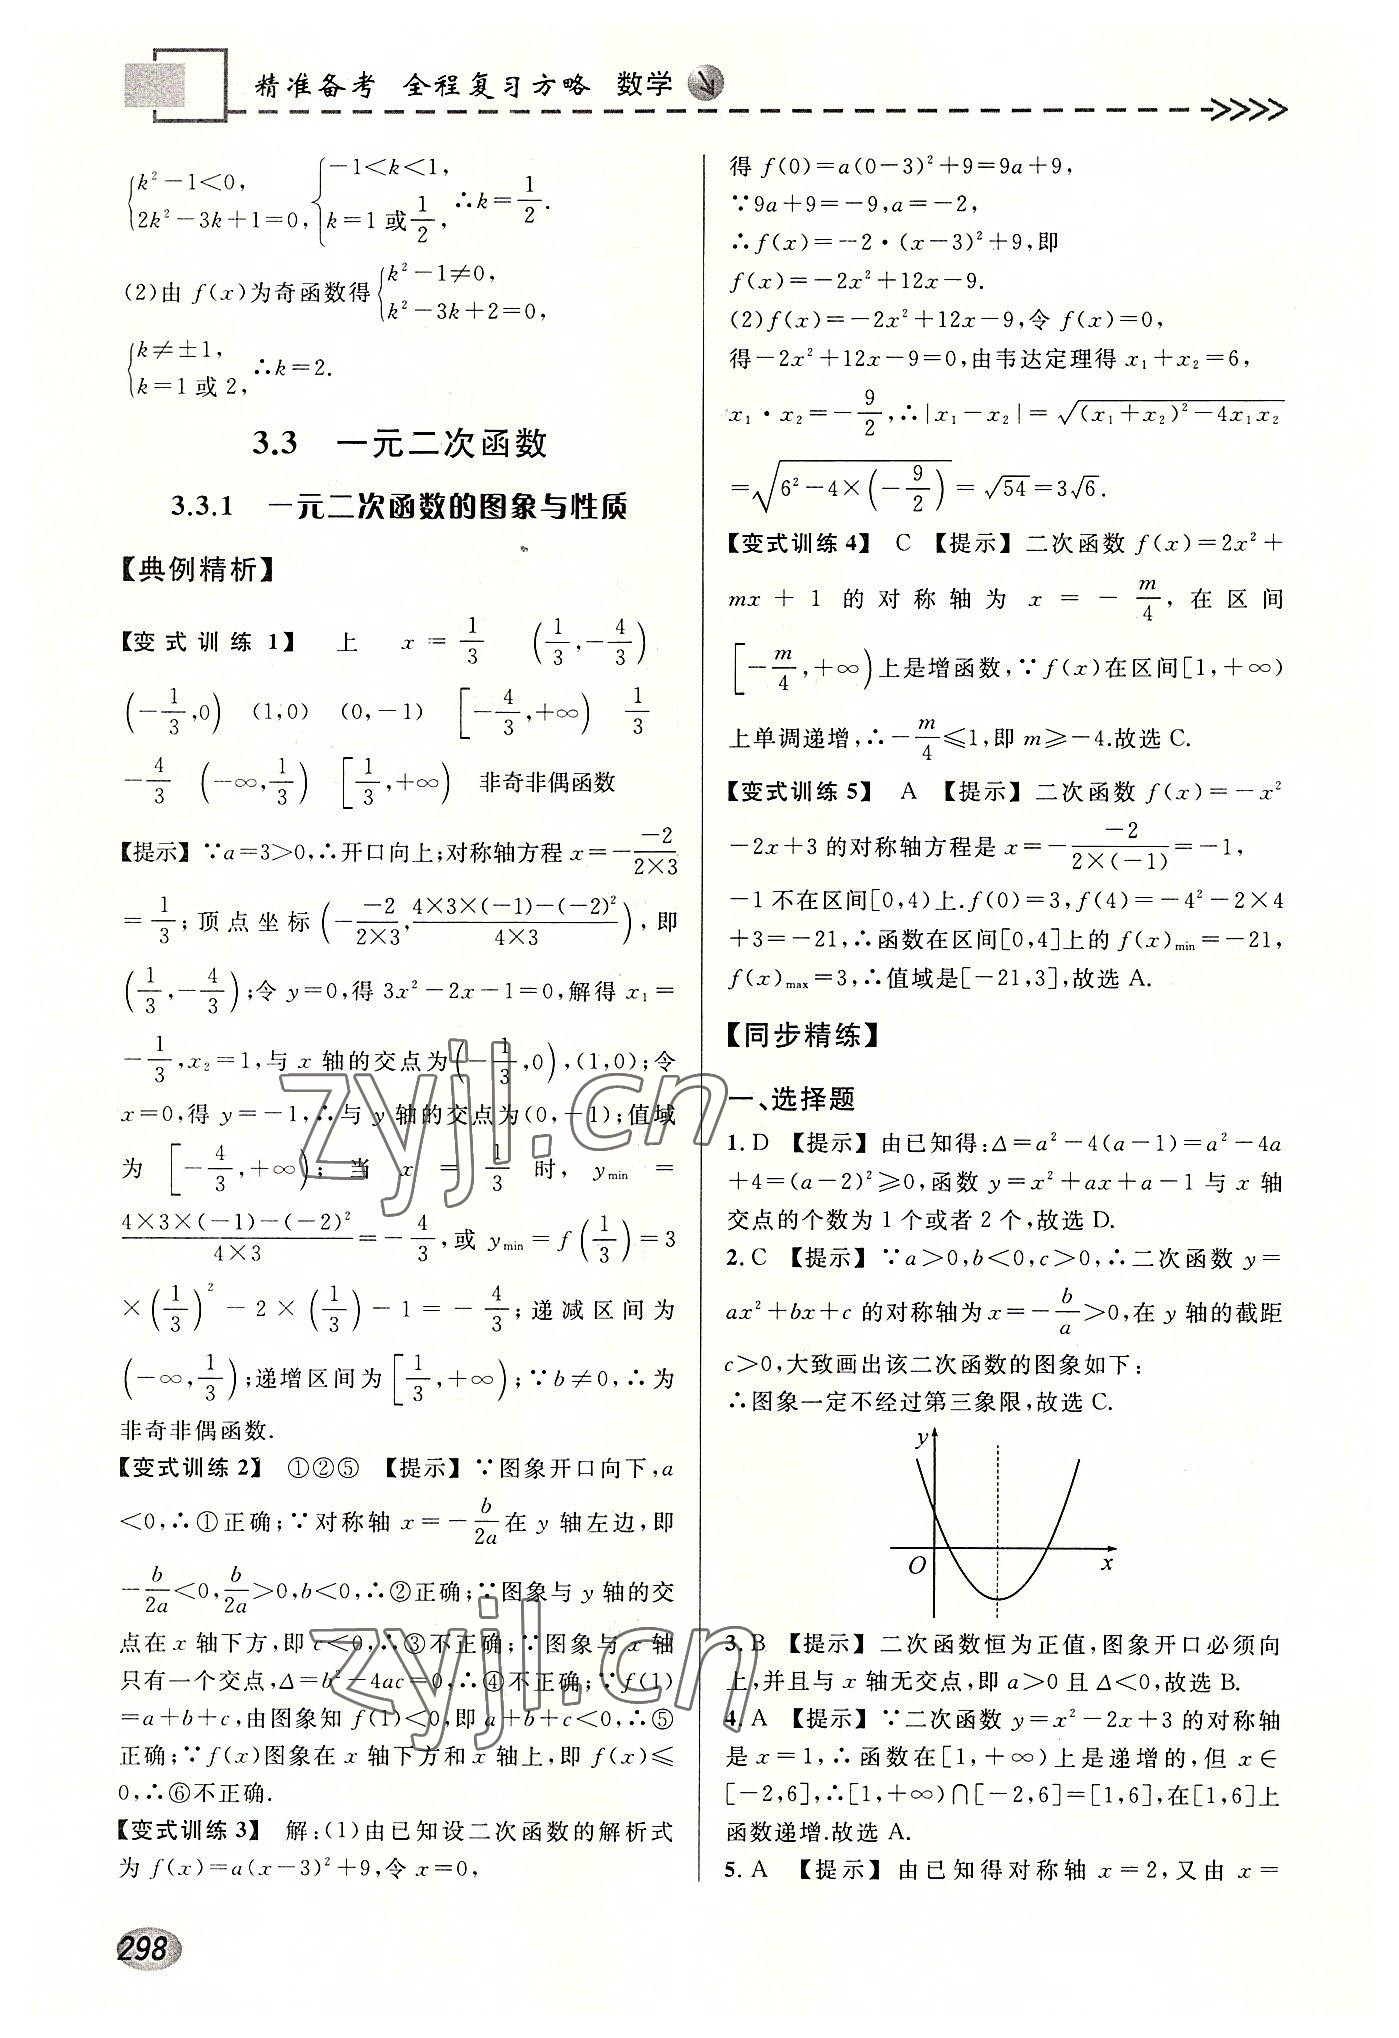 精准备考 全程复习方略 数学
{k²-1<0, 2k²-3k+1=0, {-1<k<1, k=1或1/2, ∴k=1/2.
(2)由 f(x)为奇函数得{k²-1≠0, k²-3k+2=0,
{k≠±1, k=1或2, ∴k=2.
3.3 一元二次函数
3.3.1 一元二次函数的图象与性质
【典例精析】
【变式训练1】 上 x=1/3 (1/3,-4/3)
(-1/3,0) (1,0) (0,-1) [-4/3,+∞) 1/3
-4/3 (-∞,1/3) [1/3,+∞) 非奇非偶函数
【提示】∵a=3>0,∴开口向上;对称轴方程 x=-(-2)/(2×3)
=1/3;顶点坐标(-(-2)/(2×3),(4×3×(-1)-(-2)²)/(4×3)),即
(1/3,-4/3);令 y=0,得 3x²-2x-1=0,解得 x₁=
-1/3,x₂=1,与 x 轴的交点为(-1/3,0),(1,0);令
x=0,得 y=-1,∴与 y 轴的交点为(0,-1);值域
为[-4/3,+∞);当 x=1/3时,y_min=
(4×3×(-1)-(-2)²)/(4×3)=-4/3,或 y_min=f(1/3)=3
×(1/3)²-2×(1/3)-1=-4/3;递减区间为
(-∞,1/3);递增区间为[1/3,+∞);∵b≠0,∴为
非奇非偶函数.
【变式训练2】 ①②⑤ 【提示】∵图象开口向下,a
<0,∴①正确;∵对称轴 x=-b/2a在 y 轴左边,即
-b/2a<0,b/2a>0,b<0,∴②正确;∵图象与 y 轴的交
点在 x 轴下方,即 c<0,∴③不正确;∵图象与 x 轴
只有一个交点,Δ=b²-4ac=0,∴④不正确;∵f(1)
=a+b+c,由图象知 f(1)<0,即a+b+c<0,∴⑤
正确;∵f(x)图象在 x 轴下方和 x 轴上,即 f(x)≤
0,∴⑥不正确.
【变式训练3】 解:(1)由已知设二次函数的解析式
为 f(x)=a(x-3)²+9,令 x=0,
得 f(0)=a(0-3)²+9=9a+9,
∵9a+9=-9,a=-2,
∴f(x)=-2·(x-3)²+9,即
f(x)=-2x²+12x-9.
(2)f(x)=-2x²+12x-9,令 f(x)=0,
得-2x²+12x-9=0,由韦达定理得 x₁+x₂=6,
x₁·x₂=-9/2,∴|x₁-x₂|=√((x₁+x₂)²-4x₁x₂)
=√(6²-4×(-9/2))=√54=3√6.
【变式训练4】 C 【提示】二次函数 f(x)=2x²+
mx+1的对称轴为 x=-m/4,在区间
[-m/4,+∞)上是增函数,∵f(x)在区间[1,+∞)
上单调递增,∴-m/4≤1,即 m≥-4.故选 C.
【变式训练5】 A 【提示】二次函数 f(x)=-x²
-2x+3 的对称轴方程是 x=-(-2)/(2×(-1))=-1,
-1不在区间[0,4)上.f(0)=3,f(4)=-4²-2×4
+3=-21,∴函数在区间[0,4]上的 f(x)_min=-21,
f(x)_max=3,∴值域是[-21,3],故选 A.
【同步精练】
一、选择题
1.D 【提示】由已知得:Δ=a²-4(a-1)=a²-4a
+4=(a-2)²≥0,函数 y=x²+ax+a-1 与 x 轴
交点的个数为 1 个或者 2 个,故选 D.
2.C 【提示】∵a>0,b<0,c>0,∴二次函数 y=
ax²+bx+c 的对称轴为 x=-b/a>0,在 y 轴的截距
c>0,大致画出该二次函数的图象如下:
∴图象一定不经过第三象限,故选 C.
y
O x
3.B 【提示】二次函数恒为正值,图象开口必须向
上,并且与 x 轴无交点,即 a>0 且 Δ<0,故选 B.
4.A 【提示】∵二次函数 y=x²-2x+3 的对称轴
是 x=1,∴函数在[1,+∞)上是递增的,但 x∈
[-2,6],∴[1,+∞)∩[-2,6]=[1,6],在[1,6]上
函数递增.故选 A.
5.A 【提示】由已知得对称轴 x=2,又由 x=
298
zyjl.cn
zyjl.cn